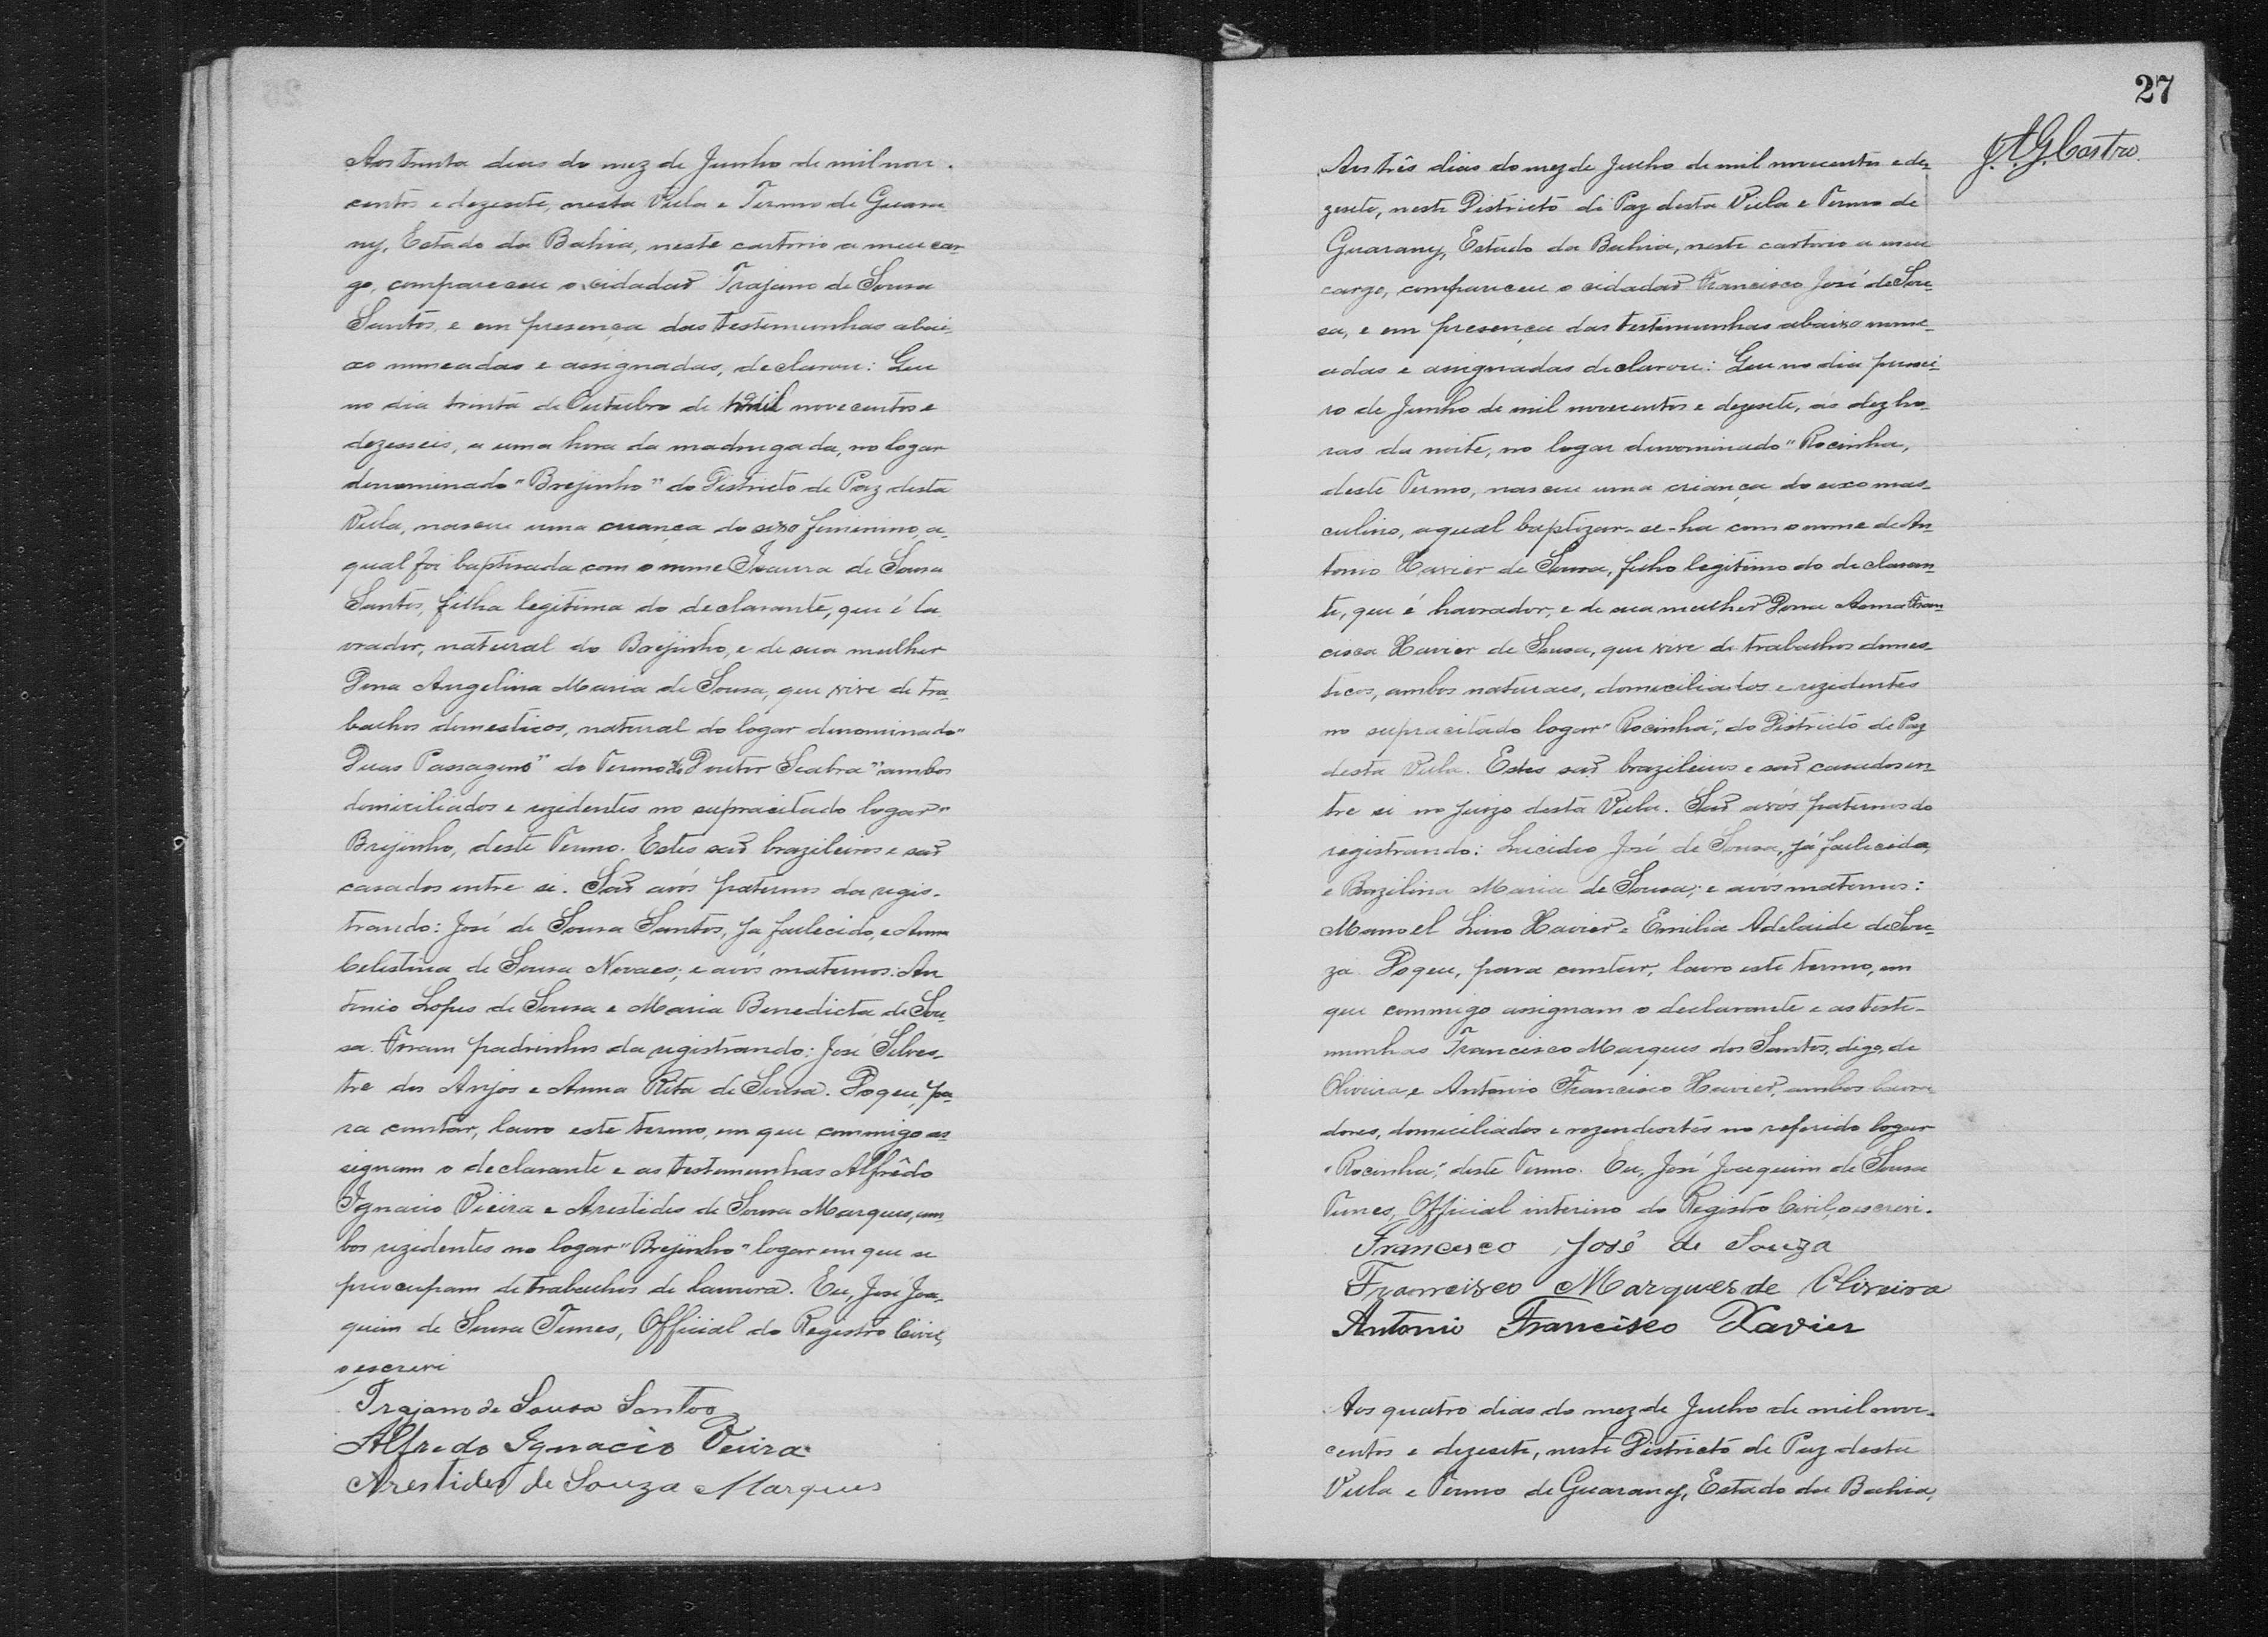 Aos trinta dias do mez de Junho de mil nove-
centos e dezesete, nesta Villa e Termo de Guara-
ny, Estado da Bahia, neste cartorio a meu car-
go, compareceu o cidadaõ Trajano de Sousa
Santos, e em presença das testemunhas abai-
xo nomeadas e assignadas, declarou: Que
no dia trinta de Outubro de mil novecentos e
dezesseis, a uma hora da madrugada, no logar
denominado "Brejinho" do Districto de Paz desta
Villa, nasceu uma criança do sexo feminino, a
qual foi baptisada com o nome Isaura de Sousa
Santos, filha legitima do declarante, que é la-
vrador, natural do Brejinho, e de sua mulher
Dona Angelina Maria de Sousa, que vive de tra-
balhos domesticos, natural do logar denominado "
Duas Passagens" do Termo do "Doutor Seabra" ambos
domiciliados e rezidentes no supracitado logar "
Brejinho, deste Termo. Estes saõ brazileiros e saõ
casados entre si. Saõ avós paternos da regis-
trando: José de Sousa Santos, já fallecido, e Anna
Celestina de Sousa Novaes; e avós maternos: An
tonio Lopes de Sousa e Maria Benedicta de Sou-
sa. Foram padrinhos da registrando: José Silves-
tre dos Anjos e Anna Rita de Sousa. Do que, pa-
ra constar, lavro este termo, em que commigo as-
signam o declarante e as testemunhas Alfrêdo
Ignacio Vieira e Arestides de Sousa Marques, am-
bos rezidentes no logar "Brejinho" logar em que se
preocupam de trabalhos de lavoura. Eu, José Joa-
quim de Sousa Tunes, Official do Registro Civil,
o escrevi
Trajano de Sousa Santos
Alfredo Ignacio Vieira
Arestides de Souza Marques
27
J. A. G. Castro.
Aos três dias do mez de Julho de mil novecentos e de-
zesete, neste Districto de Paz desta Villa e Termo de
Guarany, Estado da Bahia, neste cartorio a meu
cargo, compareceu o cidadaõ Francisco José de Sou-
sa, e em presença das testemunhas abaixo nome-
adas e assignadas declarou: Que no dia primei-
ro de Junho de mil novecentos e dezesete, ás dez ho-
ras da noite, no logar denominado "Rocinha,
deste Termo, nasceu uma criança do sexo mas-
culino, a qual baptizar-se-ha com o nome de An-
tonio Xavier de Sousa, filho legitimo do declaran-
te, que é lavrador, e de sua mulher Dona Anna Fran-
cisca Xavier de Sousa, que vive de trabalhos domes-
ticos, ambos naturaes, domiciliados e rezidentes
no supracitado logar "Rocinha", do Districto de Paz
desta Villa. Estes saõ brazileiros e saõ casados en-
tre si no Juizo desta Villa. Saõ avós paternos do
registrando: Lucidio José de Sousa, já fallecido,
e Brazilina Maria de Sousa; e avós maternos:
Manoel Lino Xavier e Emilia Adelaide de Sou-
za. Do que, para constar, lavro este termo, em
que commigo assignam o declarante e as teste-
munhas Francisco Marques dos Santos, digo, de
Oliveira, e Antonio Francisco Xavier, ambos lavra-
dores, domiciliados e rezendentes no referido logar
"Rocinha", deste Termo. Eu, José Joaquim de Sousa
Tunes, Official interino do Registro Civil, o escrevi.
Francisco José de Souza
Francisco Marques de Oliveira
Antonio Francisco Xavier
Aos quatro dias do mez de Julho de mil nove-
centos e dezesete, neste Districto de Paz desta
Villa e Termo de Guarany, Estado da Bahia,